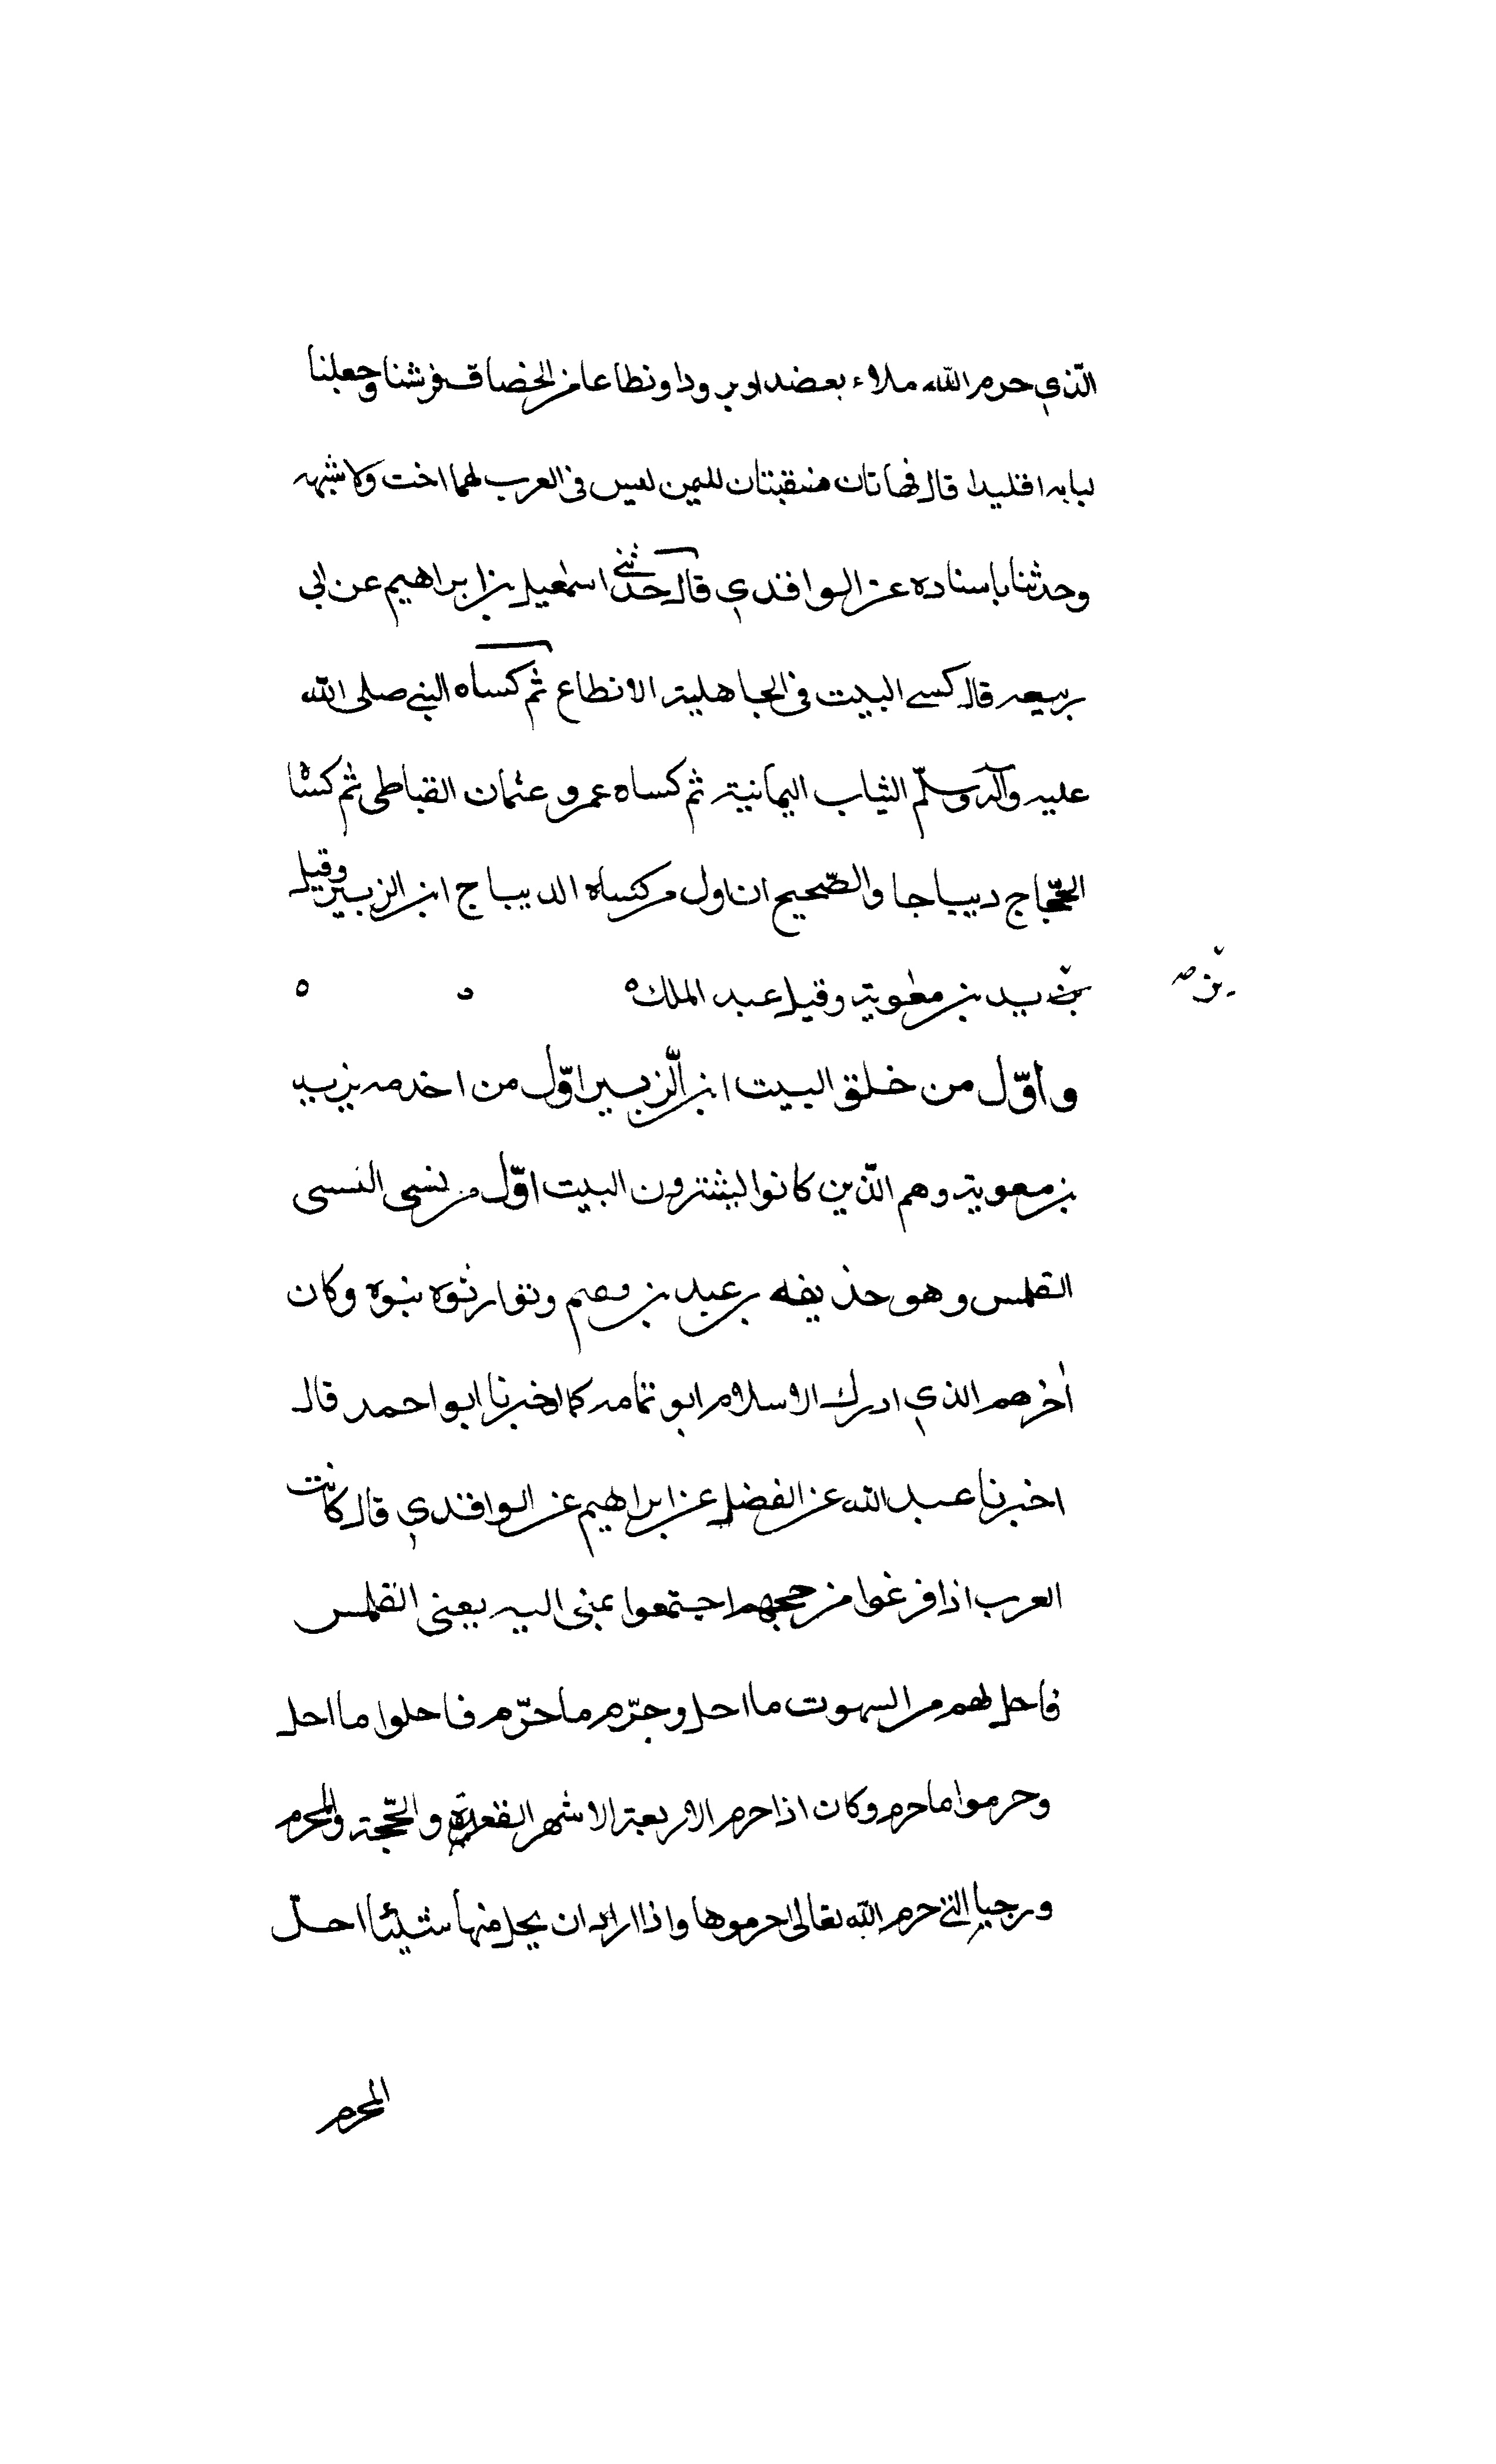 الّذي حرم الله ملاء بعضد او برودا ونطاعا من الخصاف فرشنا وجعلنا
لبابه اقليدا قال فهاتان منقبتان لليمن ليس فى العرب لهما اخت ولا شبهه
وحدثنا باسناده عن الواقدي قال حدثني اسمٰعيل بن ابراهيم عن ابى
ربيعه قال كسى البيت فى الجاهلية الانطاع ثم كساه النبى صلى الله
عليه وآله وسلّم الثياب اليمانية ثم كساه عمر و عثمان القباطى ثم كساه
الحجّاج ديباجا والصّحيح ان اول من كساه الديباج ابن الزبير وقيل
يزيد بن معٰوية وقيل عبد الملك ه ه
يز صح
واوّل من خلق البيت ابن الّزبير اوّل من اخدمه يزيد
بن معوية وهم الذين كانوا يشترون البيت اوّل من نسى النسى
القلمس وهو حذيفه بن عبد بن فقيم وتوارثوه بنوه وكان
اٰخرهم الذي ادرك الاسلام ابو ثمامه كما اخبرنا ابو احمد قال
اخبرنا عبد الله عن الفضل عن ابراهيم عن الواقدي قال كانت
العرب اذا فرغوا من حجهم اجتمعوا بمنى اليه يعنى القلمس
فاحل لهم من السهوت ما احل وحرّم ما حرّم فاحلوا ما احل
وحرموا ما حرم وكان اذا حرم الاربعة الاشهر القعدة والحّجة والمحرم
ورجبا التي حرم الله تعالى احرموها واذا اراد ان يحل منها شيئا احلّ
المحرم